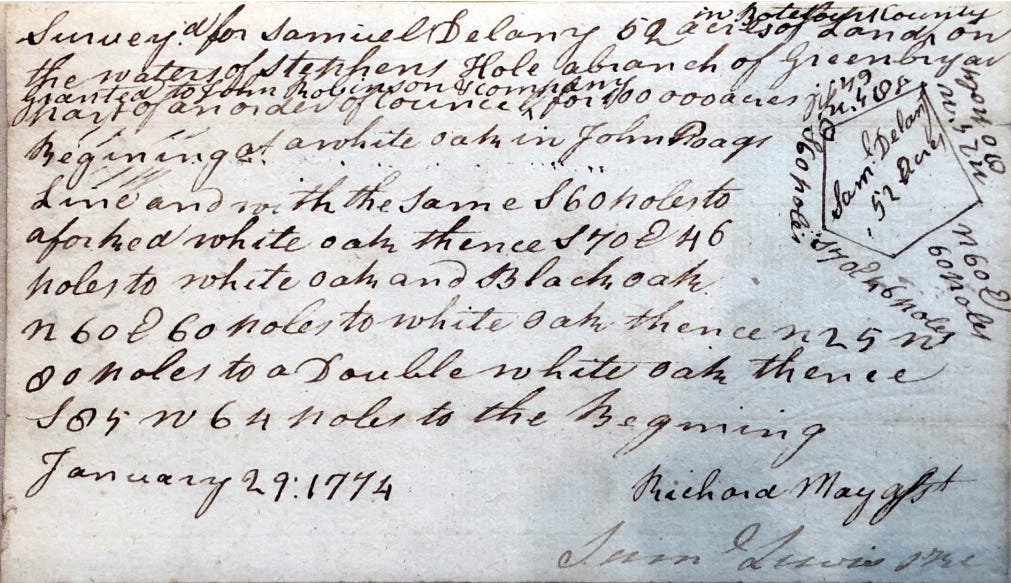 in Botetourt County
Survey.d for Samuel Delany 52 acres of Land on
the waters of Stephens Hole a branch of Greenbryar
granted to John Robinson & company
part of an order of Councel for 100000 acres
Begining at a white oak in John Poags
Line and with the same S 60 poles to
a forked white oak thence S 70 E 46
poles to white oak and Black oak
n 60 E 60 poles to white oak thence n 25 w
80 poles to a Double white oak thence
S 85 W 64 poles to the Begining
January 29: 1774
Richard May asst
Sam.l Lewis
Sam.l Delany
52 Acres
S 60 poles
S 70 E 46 poles
n 60 E
60 poles
n 25 w
80 poles
S 85 w
64 poles